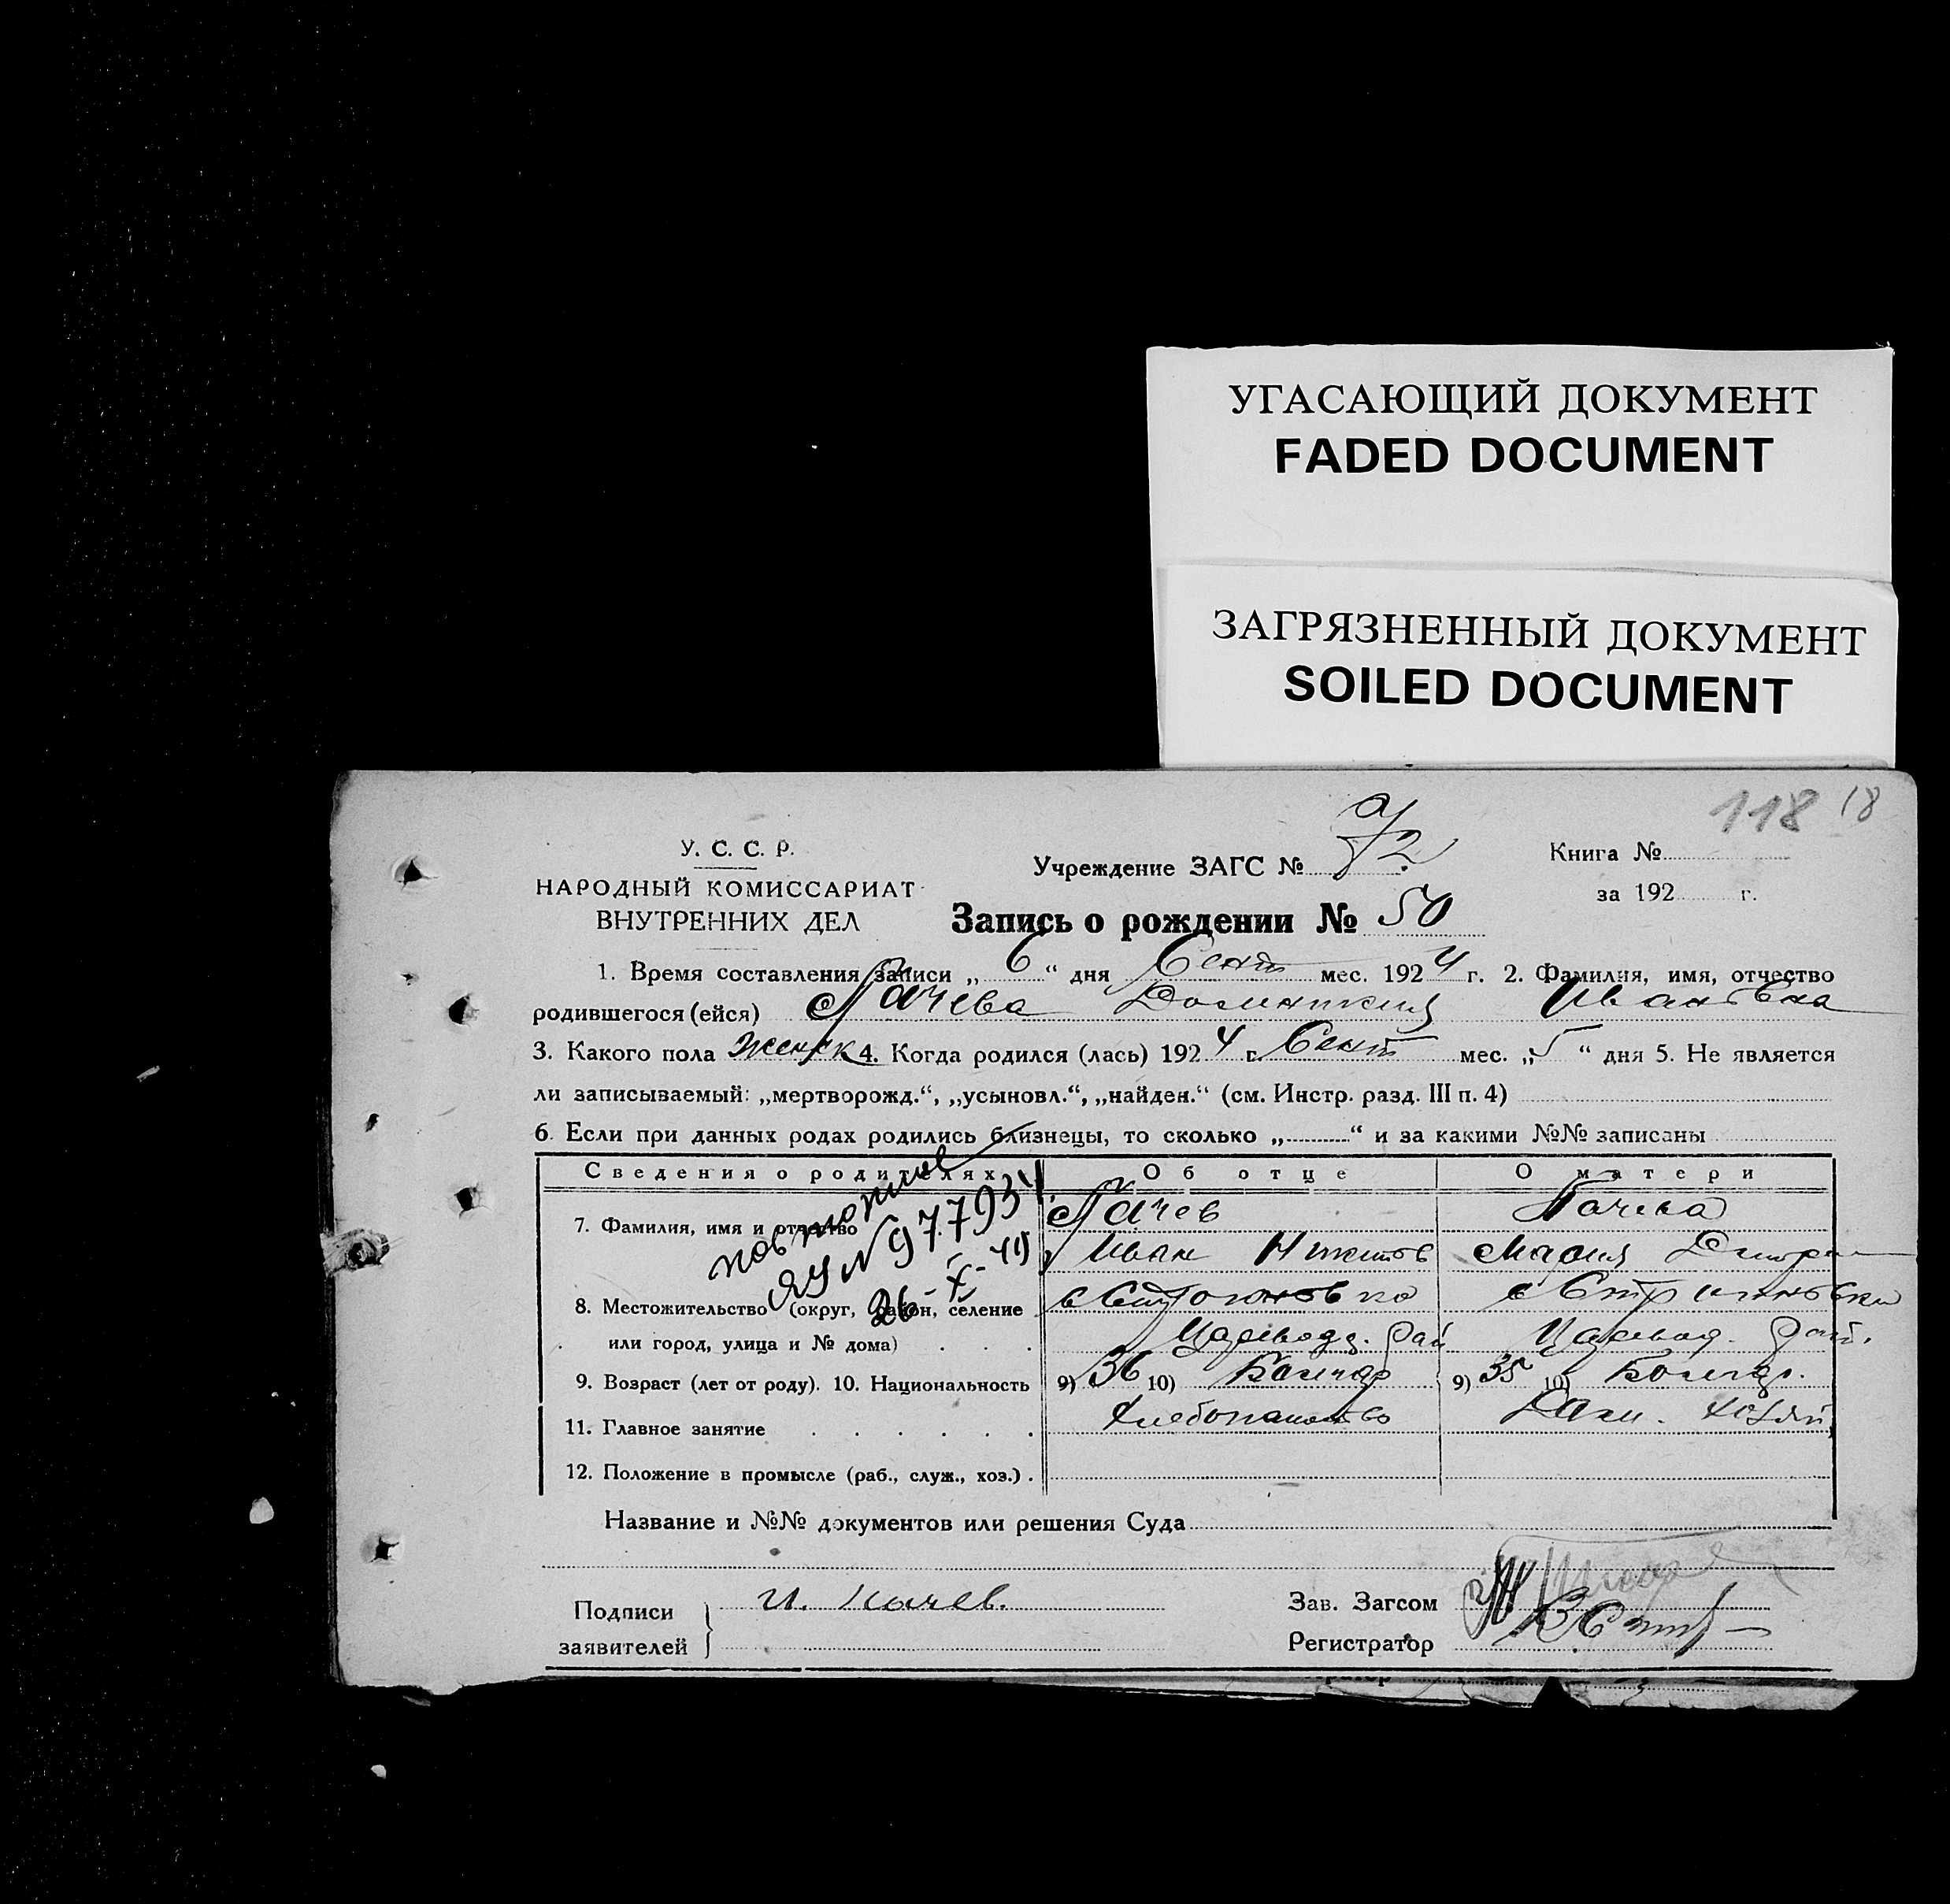 УГАСАЮЩИЙ ДОКУМЕНТ
FADED DOCUMENT
ЗАГРЯЗНЕННЫЙ ДОКУМЕНТ
SOILED DOCUMENT
118 18
У. С. С. Р.
НАРОДНЫЙ КОМИССАРИАТ
ВНУТРЕННИХ ДЕЛ
Учреждение ЗАГС №
Книга №
за 192 г.
Запись о рождении № 50
1. Время составления записи „ 6 “ дня Сент мес. 1924 г. 2. Фамилия, имя, отчество
родившегося (ейся) Ивановна
3. Какого пола женск 4. Когда родился (лась) 1924 г. Сент мес. „ 5 “ дня 5. Не является
ли записываемый: „мертворожд.“, „усыновл.“, „найден.“ (см. Инстр. разд. III п. 4)
6. Если при данных родах родились близнецы, то сколько „ “ и за какими №№ записаны
Сведения о родителях Об отце О матери
7. Фамилия, имя и отчество
Иван Никитов Мария Дмитр
повторное
ЯУ № 977934
26-X-49
8. Местожительство (округ, район, селение
или город, улица и № дома) Цареводар. Рай Царевод. Рай.
9. Возраст (лет от роду). 10. Национальность 9) 36 10) Болгар 9) 35 10) Болгар.
11. Главное занятие Хлебопашество Дом. хозяй
12. Положение в промысле (раб., служ., хоз.) .
Название и №№ документов или решения Суда
Подписи
заявителей
Зав. Загсом
Регистратор